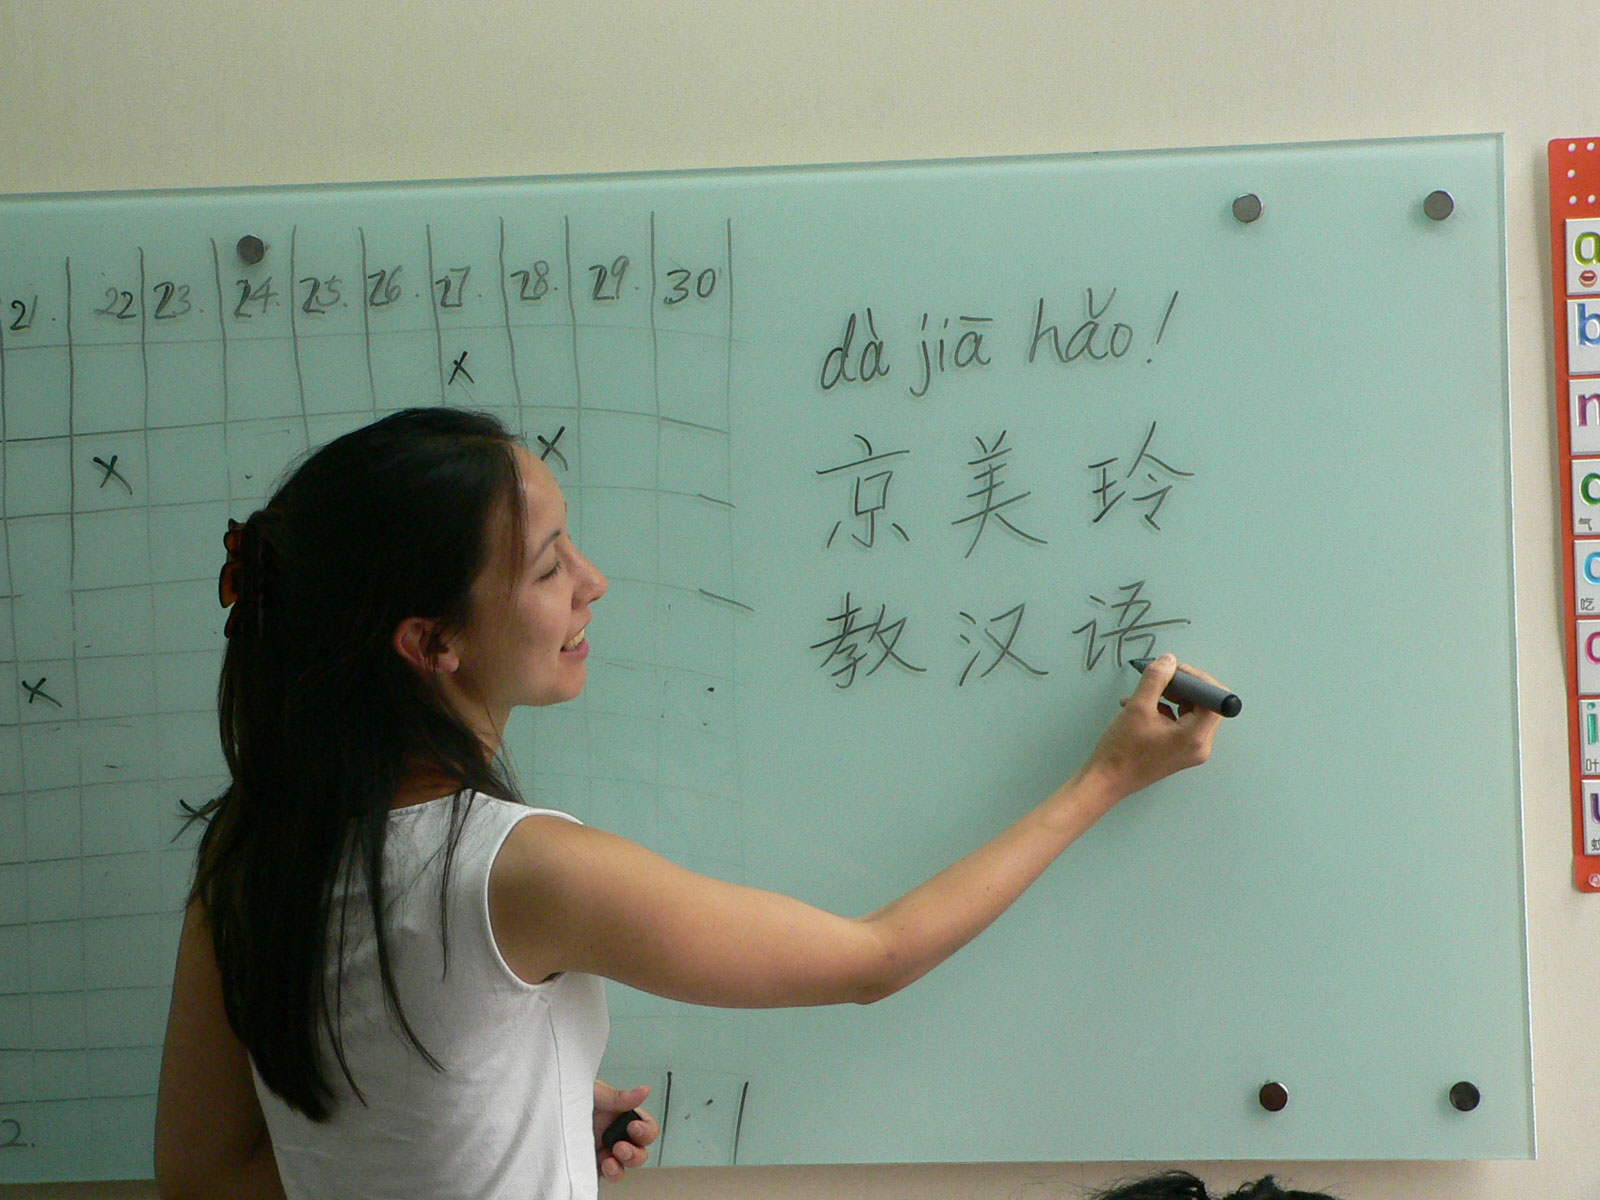 21. 22 23. 24. 25. 26. 27. 28. 29. 30
x
x x
x
x
2.
dà jiā hǎo!
京美玲
教汉语
a
b
i